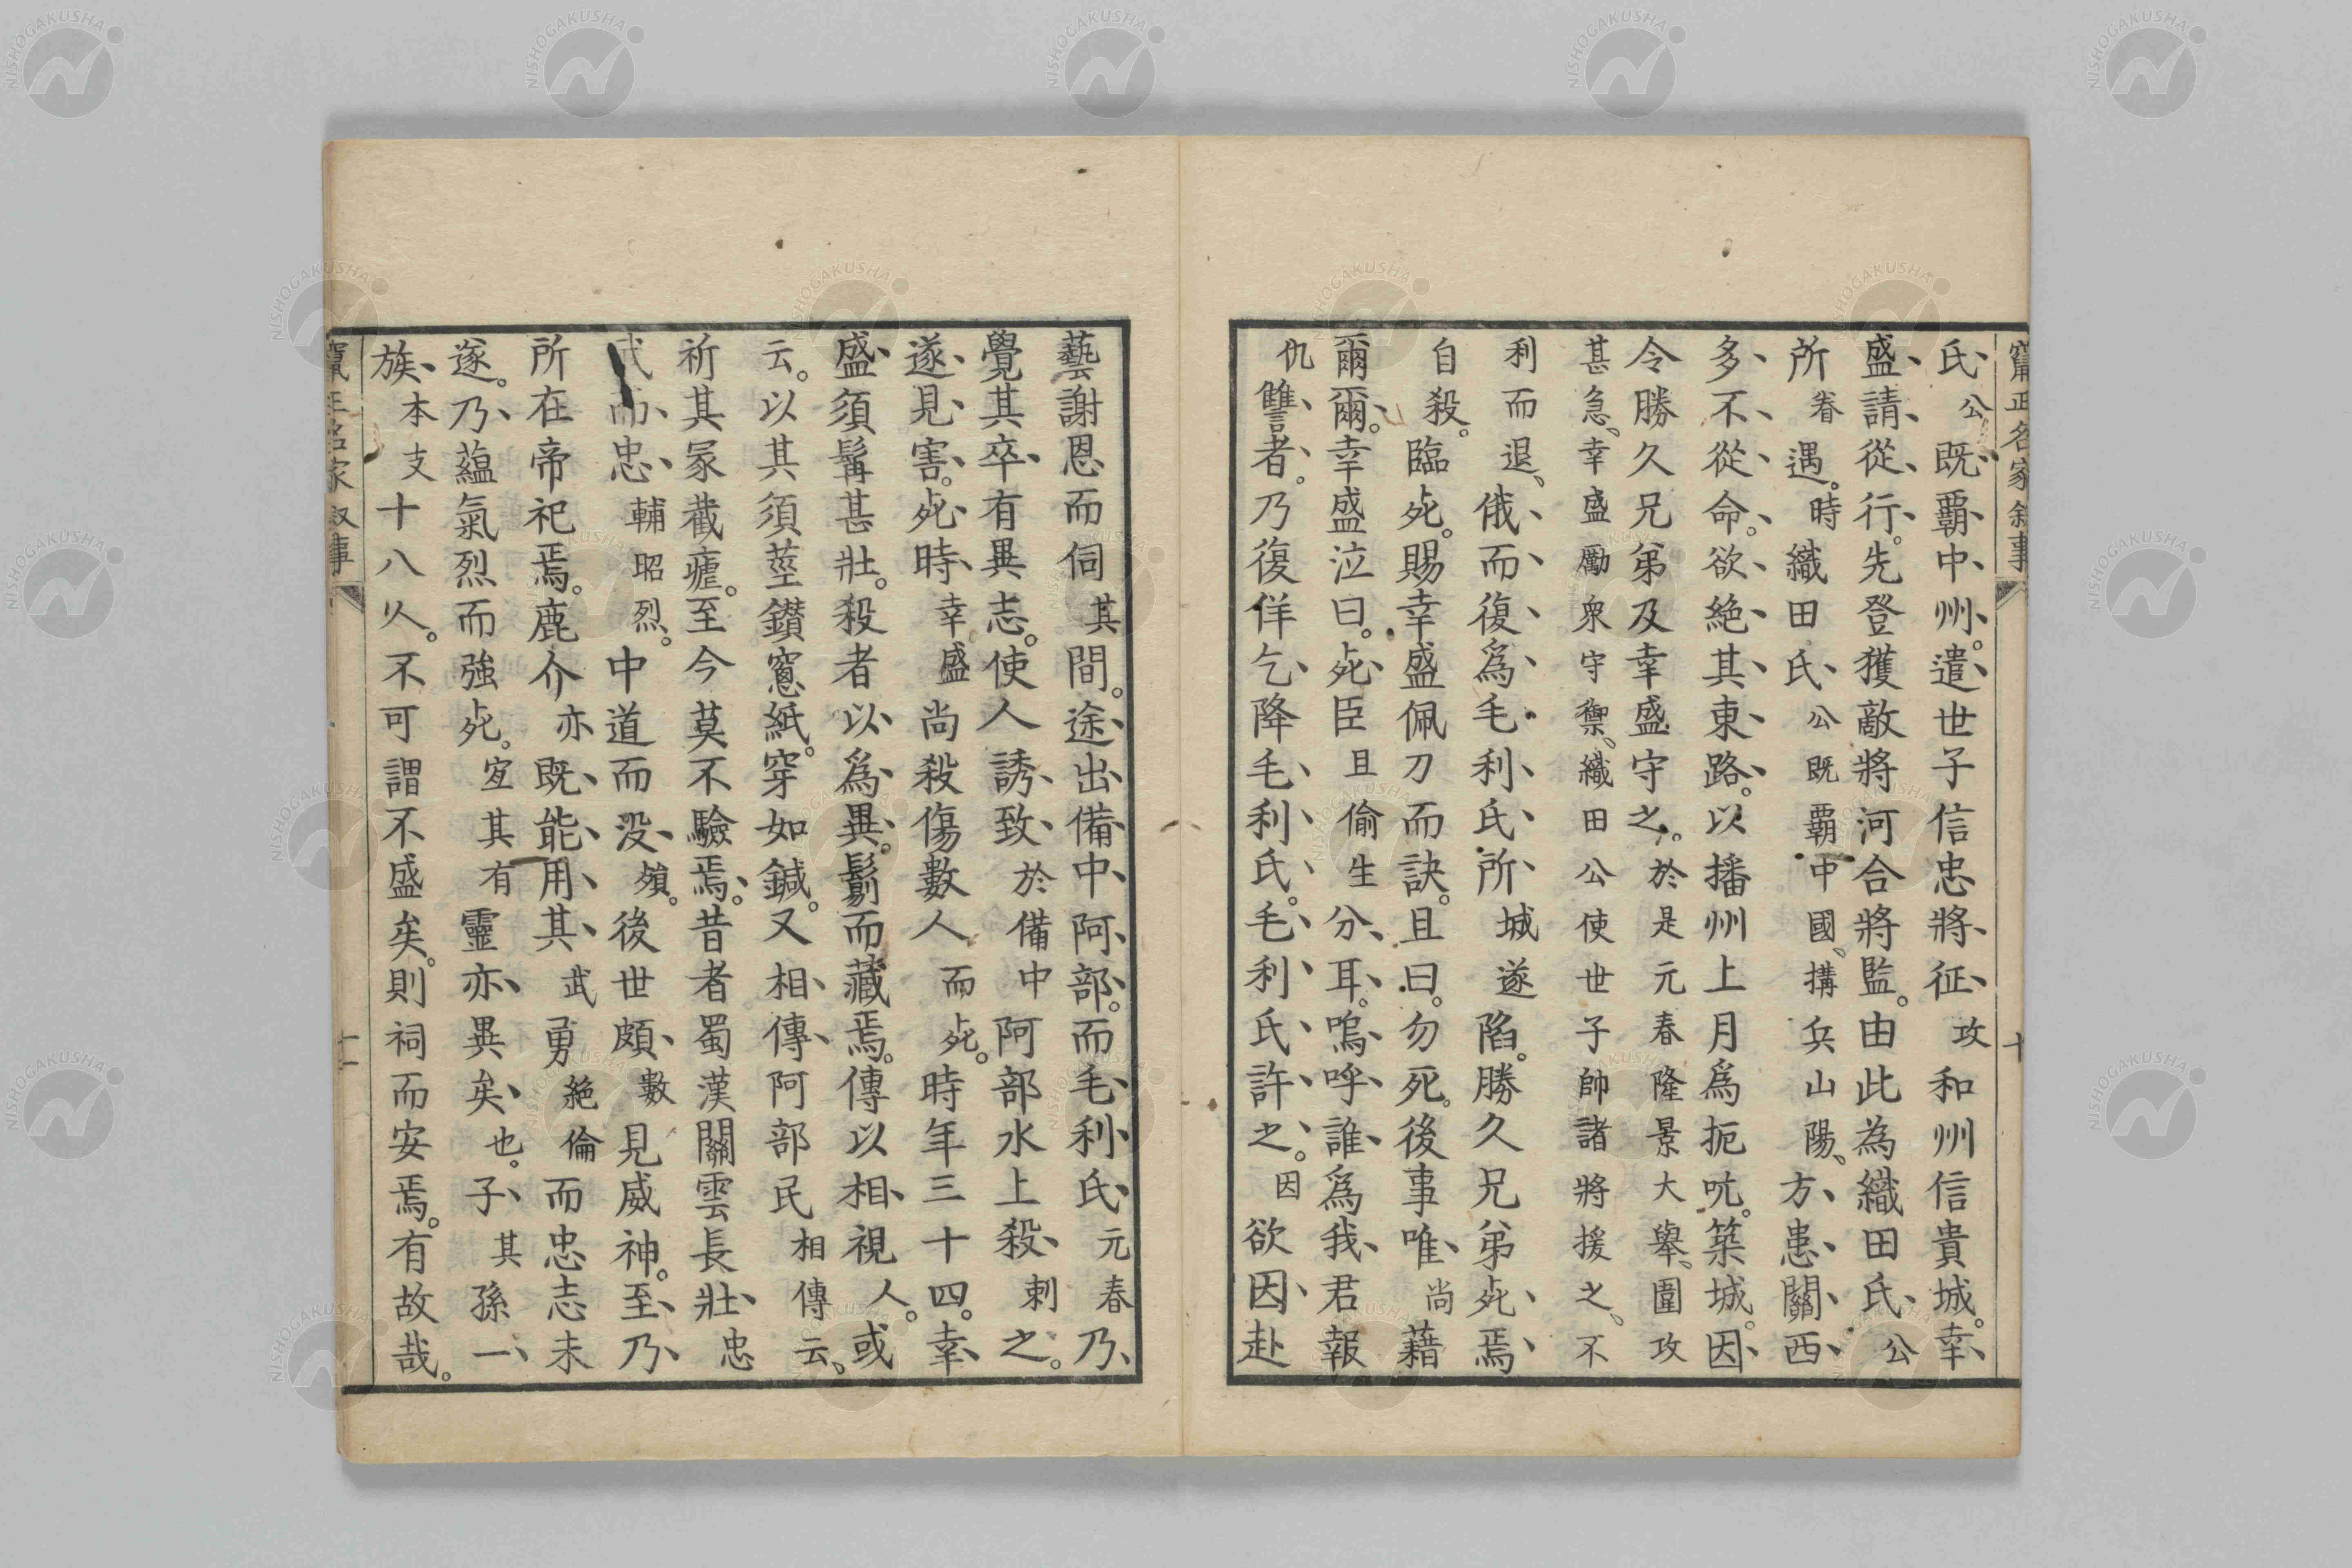 竄正名家叙事
十
氏公既覇中州。遣世子信忠將征攻和州信貴城。幸
盛請從行。先登獲敵將河合將監。由此為織田氏公
所眷遇。時織田氏公既覇中國、搆兵山陽、方患關西
多不從命。欲絶其東路。以播州上月爲扼吭。築城。因
令勝久兄弟及幸盛守之。於是元春隆景大擧、圍攻
甚急、幸盛勵衆守禦、織田公使世子帥諸將援之、不
利而退、俄而復爲毛利氏所城遂陷。勝久兄弟死焉
自殺。臨死。賜幸盛佩刀而訣。且曰。勿死。後事唯尚藉
爾爾。幸盛泣曰。死臣且偷生分耳。嗚呼誰爲我君報
仇讐者。乃復佯乞降毛利氏。毛利氏許之。因欲因赴
藝謝恩而伺其間。途出備中阿部。而毛利氏元春乃
覺其卒有異志。使人誘致於備中阿部水上殺刺之。
遂見害。死時幸盛尚殺傷數人而死。時年三十四。幸
盛須髯甚壯。殺者以爲異。鬎而藏焉。傳以相視人。或
云。以其須莖鑚窻紙。穿如鍼。又相傳阿部民相傳云、
祈其冢截瘧。至今莫不驗焉。昔者蜀漢關雲長壯忠
武而忠輔昭烈。中道而没殞。後世頗數見威神。至乃
所在帝祀焉。鹿介亦既能用其武勇絶倫而忠志未
遂。乃蘊氣烈而強死。宜其有靈亦異矣也。子其孫一
族本支十八人。不可謂不盛矣。則祠而安焉。有故哉。
竄正名家叙事
十一